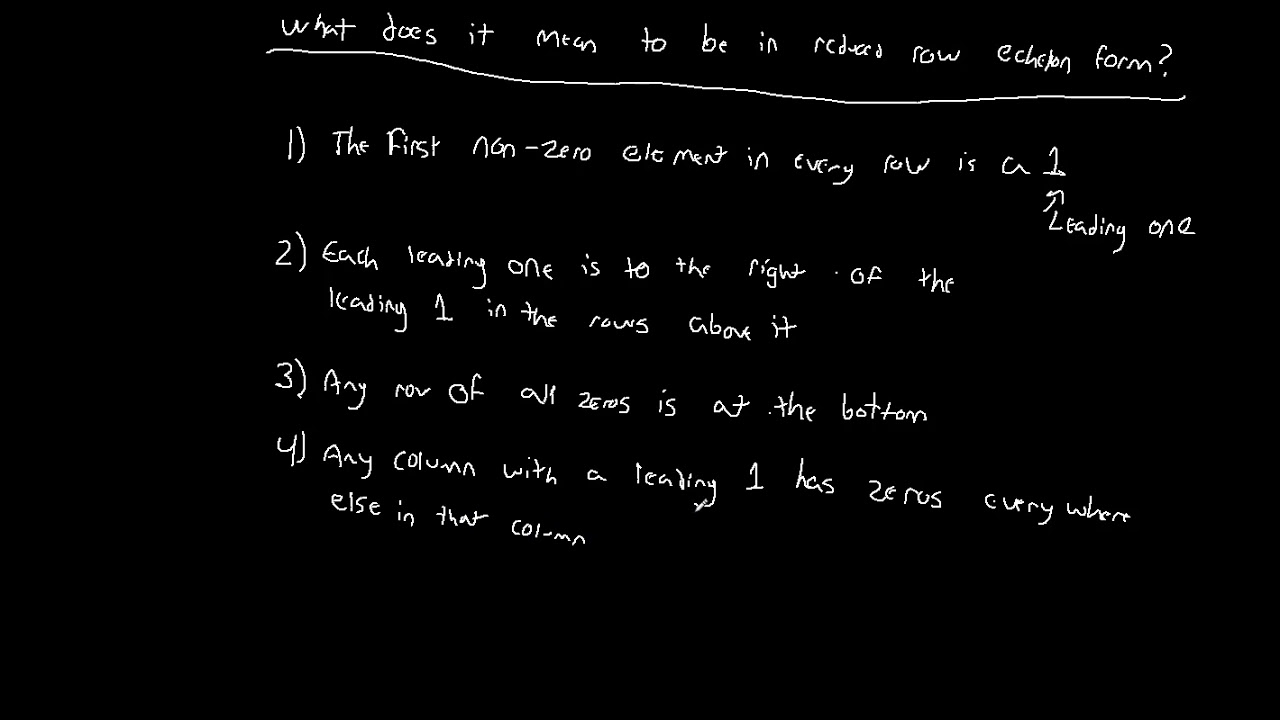 What does it mean to be in reduced row echelon form?
1) The first non-zero element in every row is a 1
Leading one
2) Each leading one is to the right of the
leading 1 in the rows above it
3) Any row of all zeros is at the bottom
4) Any column with a leading 1 has zeros everywhere
else in that column